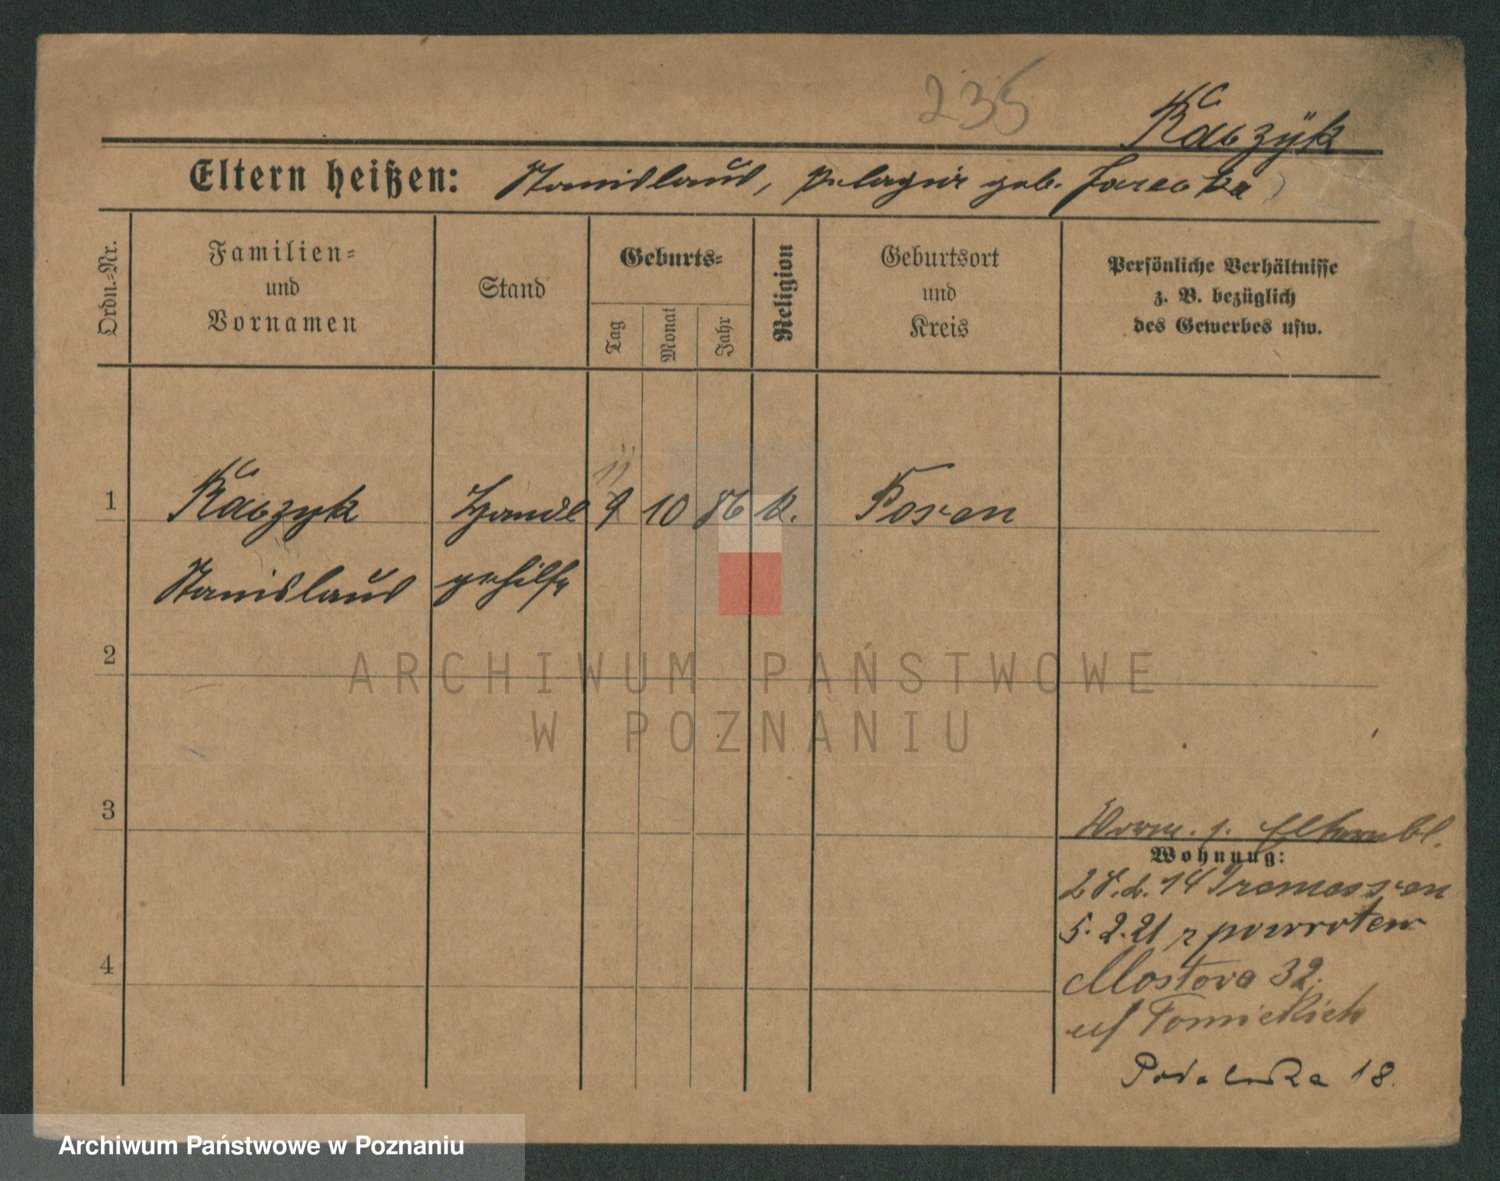 235
Kaczÿk
Eltern heißen: Stanislaus, Pelagia geb. Jarecka
Ordn.-Nr.
Familien=
und
Vornamen
Stand
Geburts=
Tag
Monat
Jahr
Religion
Geburtsort
und
Kreis
Persönliche Verhältnisse
z. B. bezüglich
des Gewerbes usw.
11
1 Kaczyk Handl 9 10 86 k. Posen
Stanislaus gehilfe
2
ARCHIWUM PAŃSTWOWE
W POZNANIU
3
Wohnung:
28.2.14 Tremessen
5.2.21 z powrotem
4
Mostowa 32.
u/ Tomickich
Podolska 18.
Archiwum Państwowe w Poznaniu